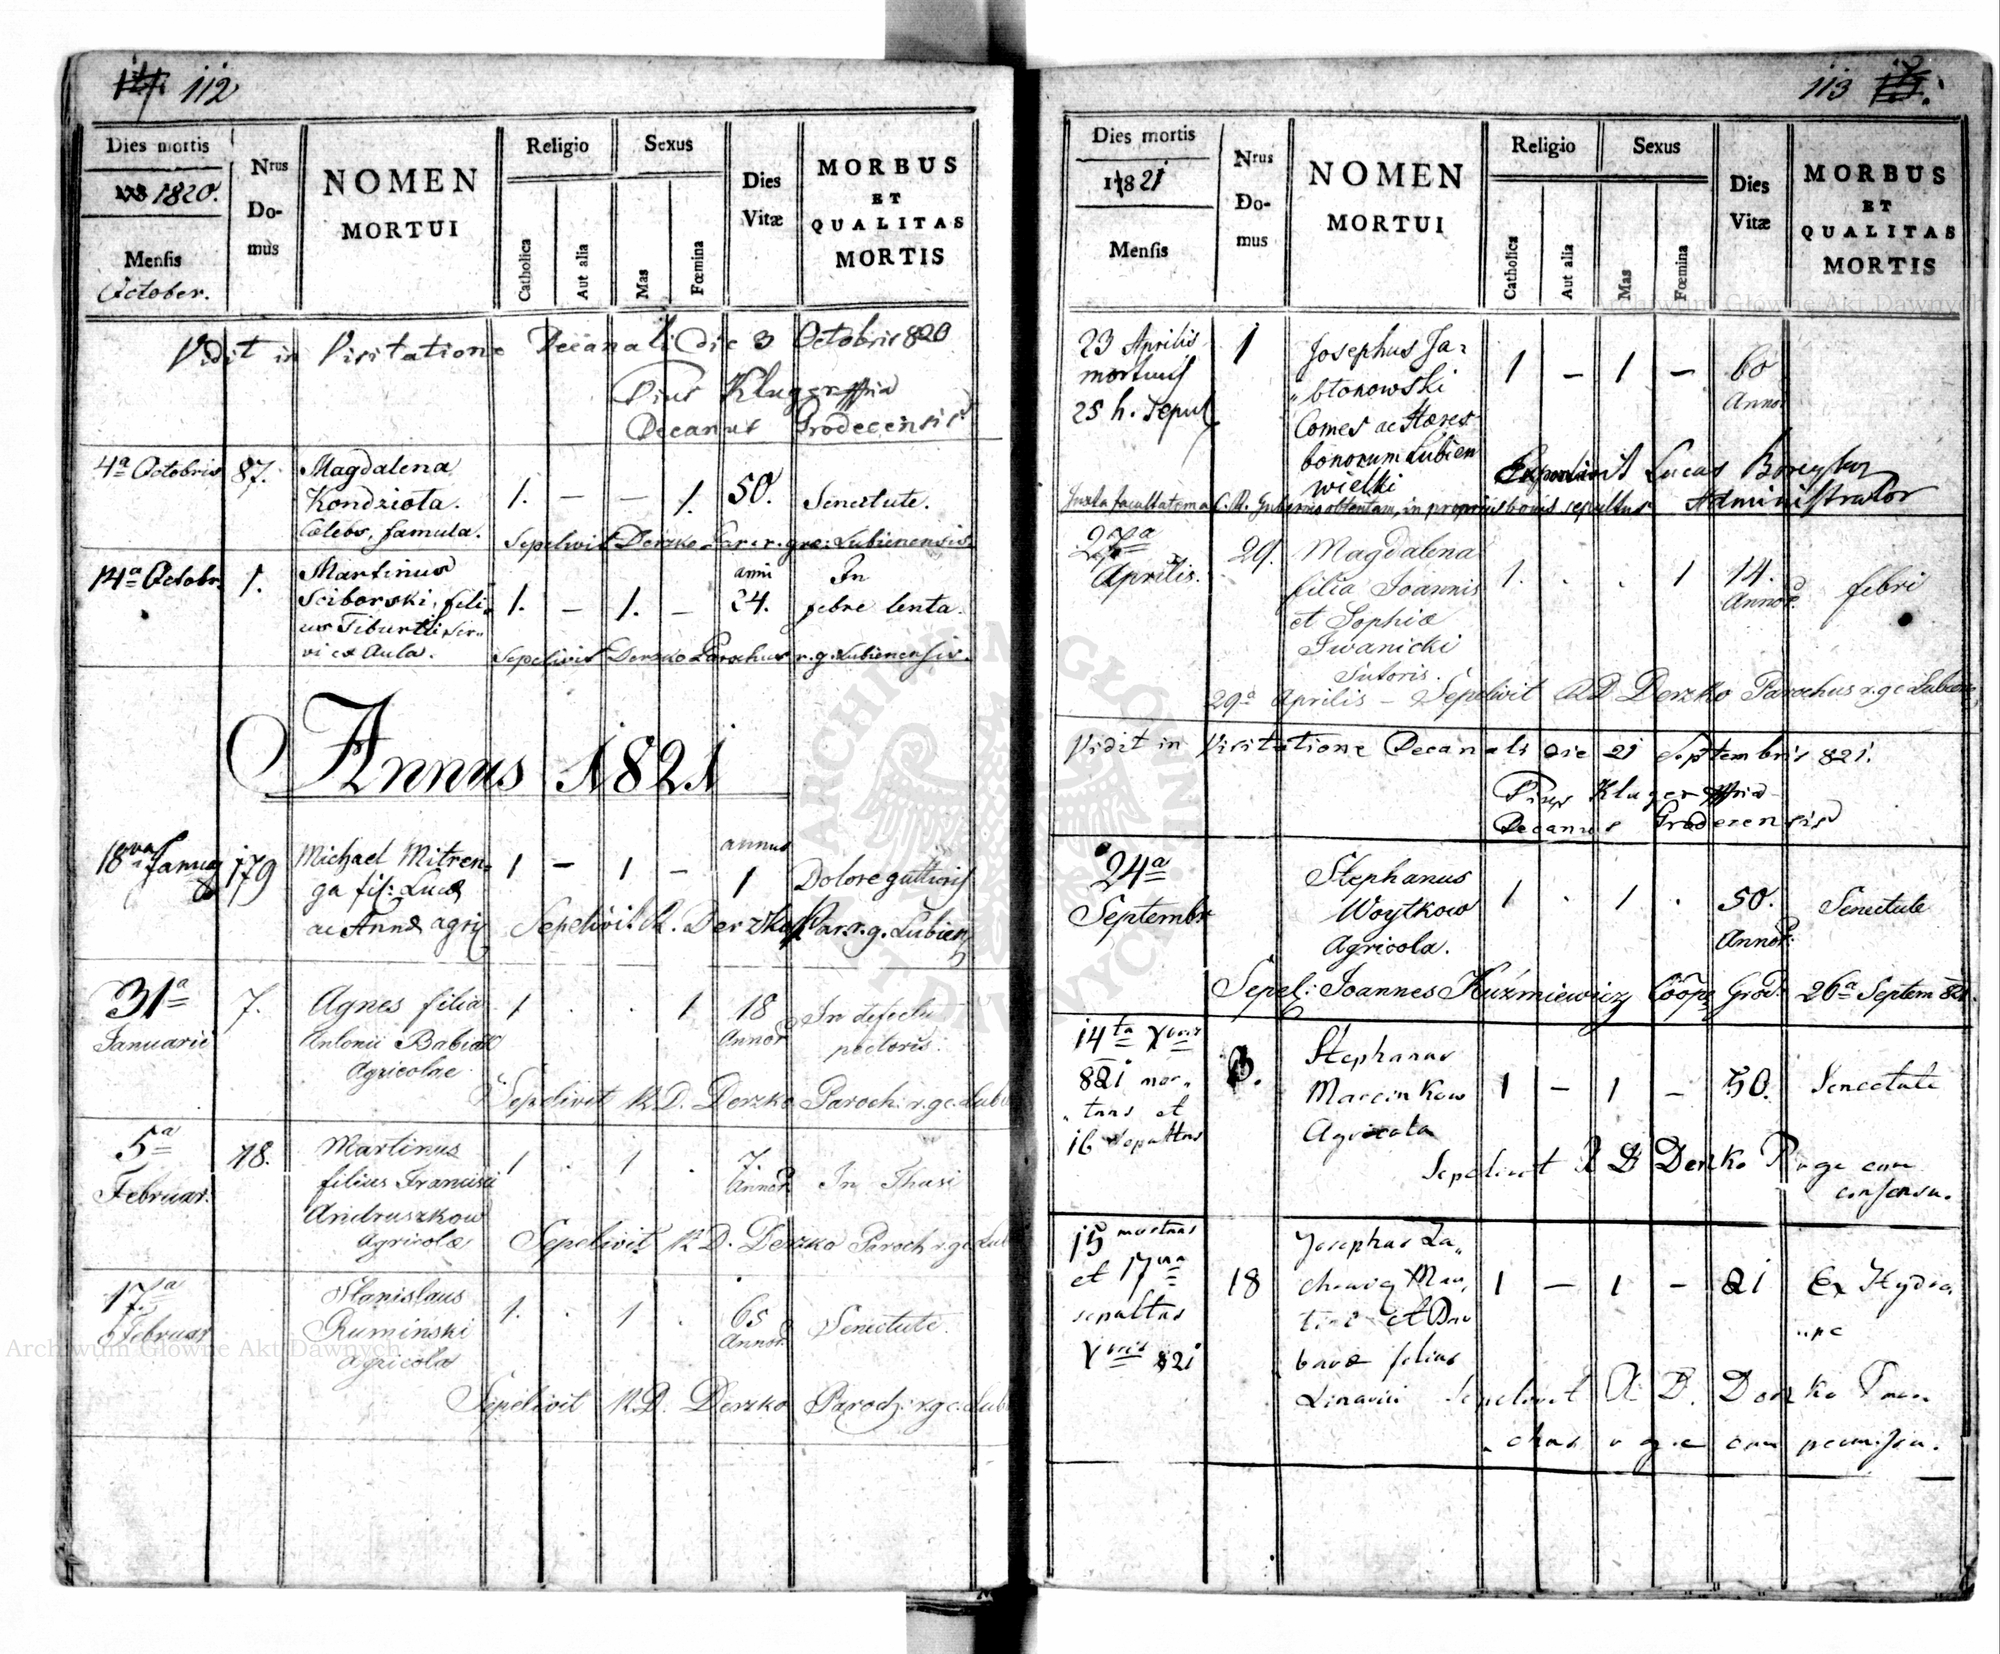 112
Dies mortis
1820.
Mensis
October.
Nrus
Do-
mus
NOMEN
MORTUI
Religio
Catholica
Aut alia
Sexus
Mas
Fœmina
Dies
Vitæ
MORBUS
ET
QUALITAS
MORTIS
Vidit in Visitatione Decanali die 3 Octobris 820
Pius Kluger
Decanus Grodecensis
4a Octobris 87. Magdalena
Kondziota. 1. — — 1. 50. Senectute.
Cælebs, famula. Sepelivit Derzko Par. r. gr. c. Lubienensis.
14a Octobr. 1. Martinus anni In
Sciborski, fili- 1. — 1. — 24. febre lenta.
us Tiburtii Ser-
vi ex Aula. Sepelivit Derzko Parochus r. g. Lubienensis.
Annus 1821
18va Januar 179 Michael Mitren- annus
ga fil: Lucæ 1 — 1 — 1 Dolore gutturis
ac Annæ agric Sepelivit R. Derzko Par. r. g. Lubien
31a 7. Agnes filia 1 . . 1 18 In defectu
Januarii Antonii Babiak Annor pectoris.
Agricolae
Sepelivit R.D. Derzko Paroch: r. g. c. Lub
5a 78. Martinus 1 . 1 . 7. In Thusi
Februar. filius Francisci Annor
Andruszkow
Agricolæ Sepelivit R.D. Derzko Paroch r. g. c. Lub
17a Stanislaus 1. . 1 . 65 Senectute.
Februar Ruminski Annor
Agricola
Sepelivit R.D. Derzko Paroch: r. g. c. Lub
113
Dies mortis
1821
Mensis
Nrus
Do-
mus
NOMEN
MORTUI
Religio
Catholica
Aut alia
Sexus
Mas
Fœmina
Dies
Vitæ
MORBUS
ET
QUALITAS
MORTIS
23 Aprilis 1 Josephus Ja- 1 — 1 — 60
mortuus błonowski Annor
25 h. sepul Comes ac Hæres
bonorum Lubien
wielki Lucas
Administrator
Juxta facultatem a C. R. Gubernio obtentam, in propriis bonis sepultus
27a 29. Magdalena 1. . . 1 14. febri
Aprilis. filia Joannis Annor.
et Sophiæ
Iwanicki
Sutoris.
29a Aprilis — Sepelivit RD Derzko Parochus r. g. c. Lubien
Vidit in Visitatione Decanali die 21 Septembris 821.
Pius Kluger
Decanus Grodecensis
24a Stephanus 1 . 1 . 50. Senectute
Septembr Woytkow Annor.
Agricola.
Sepel: Joannes Kuźmiewicz Coop Grod: 26a Septem 821.
14ta Xbris 3. Stephanus
821 mor- Marcinkow 1 — 1 — 50. Senectute
tuus et Agricola
16 sepultus Sepelivit R D Derzko P r g c cum
consensu.
15 mortuus Josephus La-
et 17ma 18 1 — 1 — 21 Ex Hydro
sepultus
Xbris 821 baræ filius
Sepelivit R. D. Derzko Paro-
chus r g. c cum permissu.
Archiwum Główne Akt Dawnych
ARCHIWUM GŁÓWNE AKT DAWNYCH
Archiwum Główne Akt Dawnych